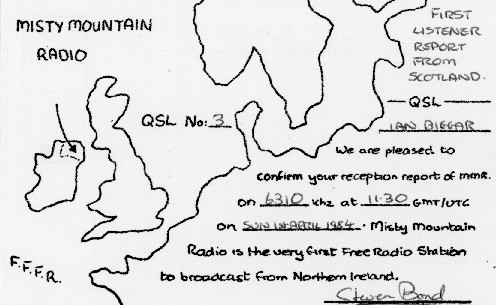 MISTY MOUNTAIN
RADIO
FIRST
LISTENER
REPORT
FROM
SCOTLAND.
QSL
QSL No: 3
IAN BIGGAR
We are pleased to
confirm your reception report of MMR.
on 6310 khz at 11·30 GMT/UTC
on SUN 1st APRIL 1984. Misty Mountain
Radio is the very first Free Radio Station
to broadcast from Northern Ireland.
F.F.F.R.
Steven Bond